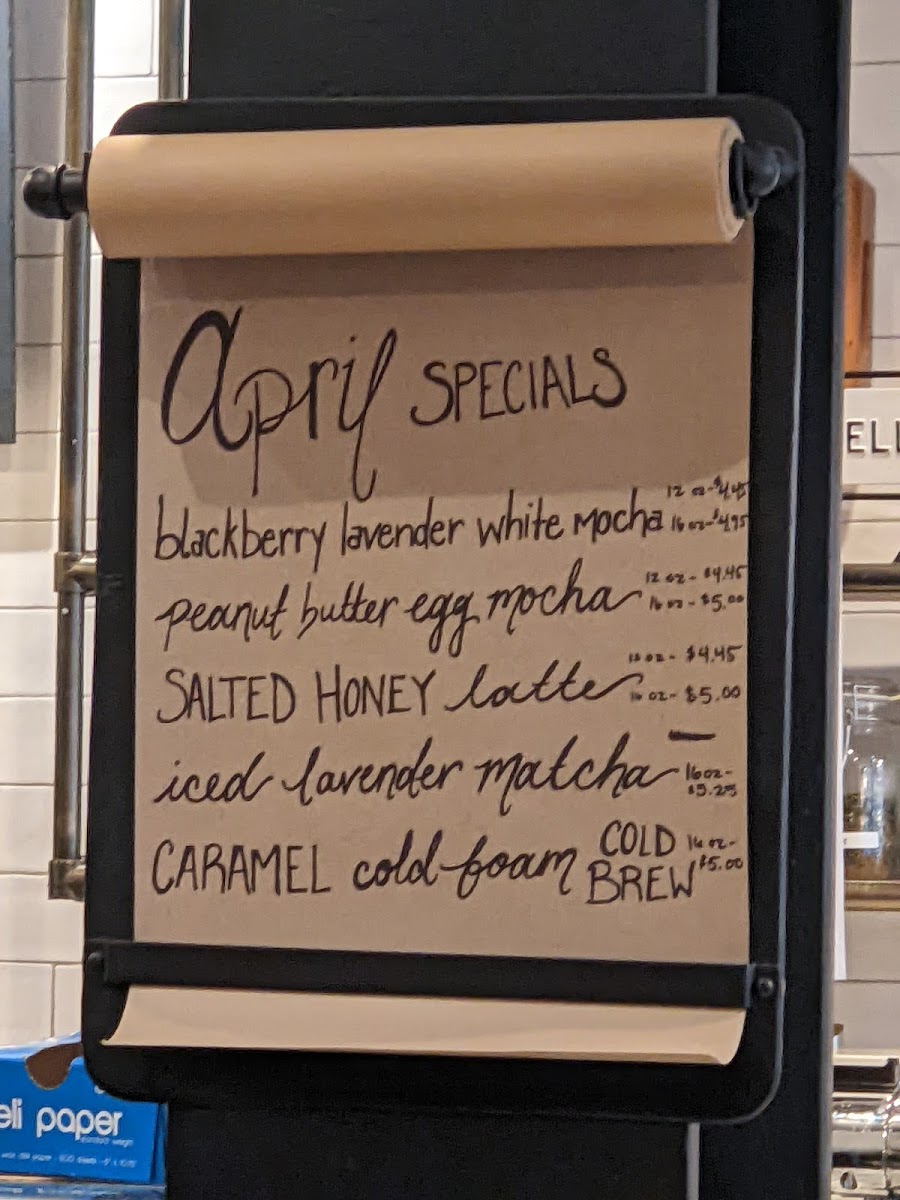 April SPECIALS
blackberry lavender white mocha 12 oz-$4.45
16 oz-$4.95
peanut butter egg mocha 12 oz - $4.45
16 oz - $5.00
SALTED HONEY latte 12 oz - $4.45
16 oz - $5.00
iced lavender matcha 16 oz-
$5.25
CARAMEL cold foam COLD BREW 16 oz-
$5.00
ELL
eli paper